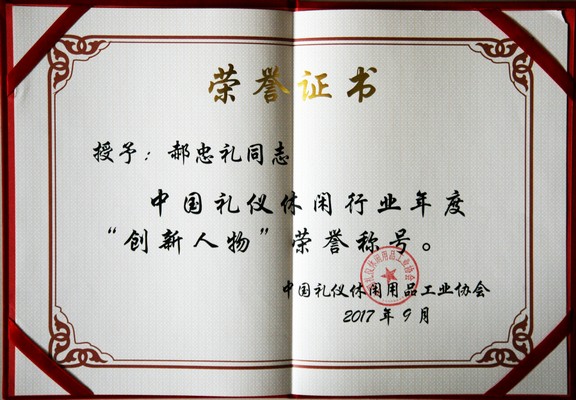 荣誉证书
授予：郝忠礼同志
中国礼仪休闲行业年度
“创新人物”荣誉称号。
中国礼仪休闲用品工业协会
2017年9月